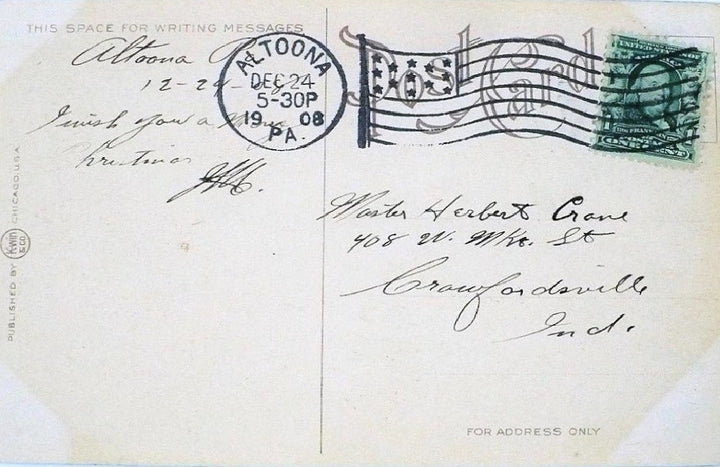 THIS SPACE FOR WRITING MESSAGES
Altoona
12-24-
I wish you a Merry
Christmas
ALTOONA
DEC 24
5-30P
1908
PA.
Post Card
ONE CENT
Master Herbert Crane
408 W. Mkt. St
Crawfordsville
Ind.
PUBLISHED BY KWIN & CO. CHICAGO, U.S.A.
FOR ADDRESS ONLY